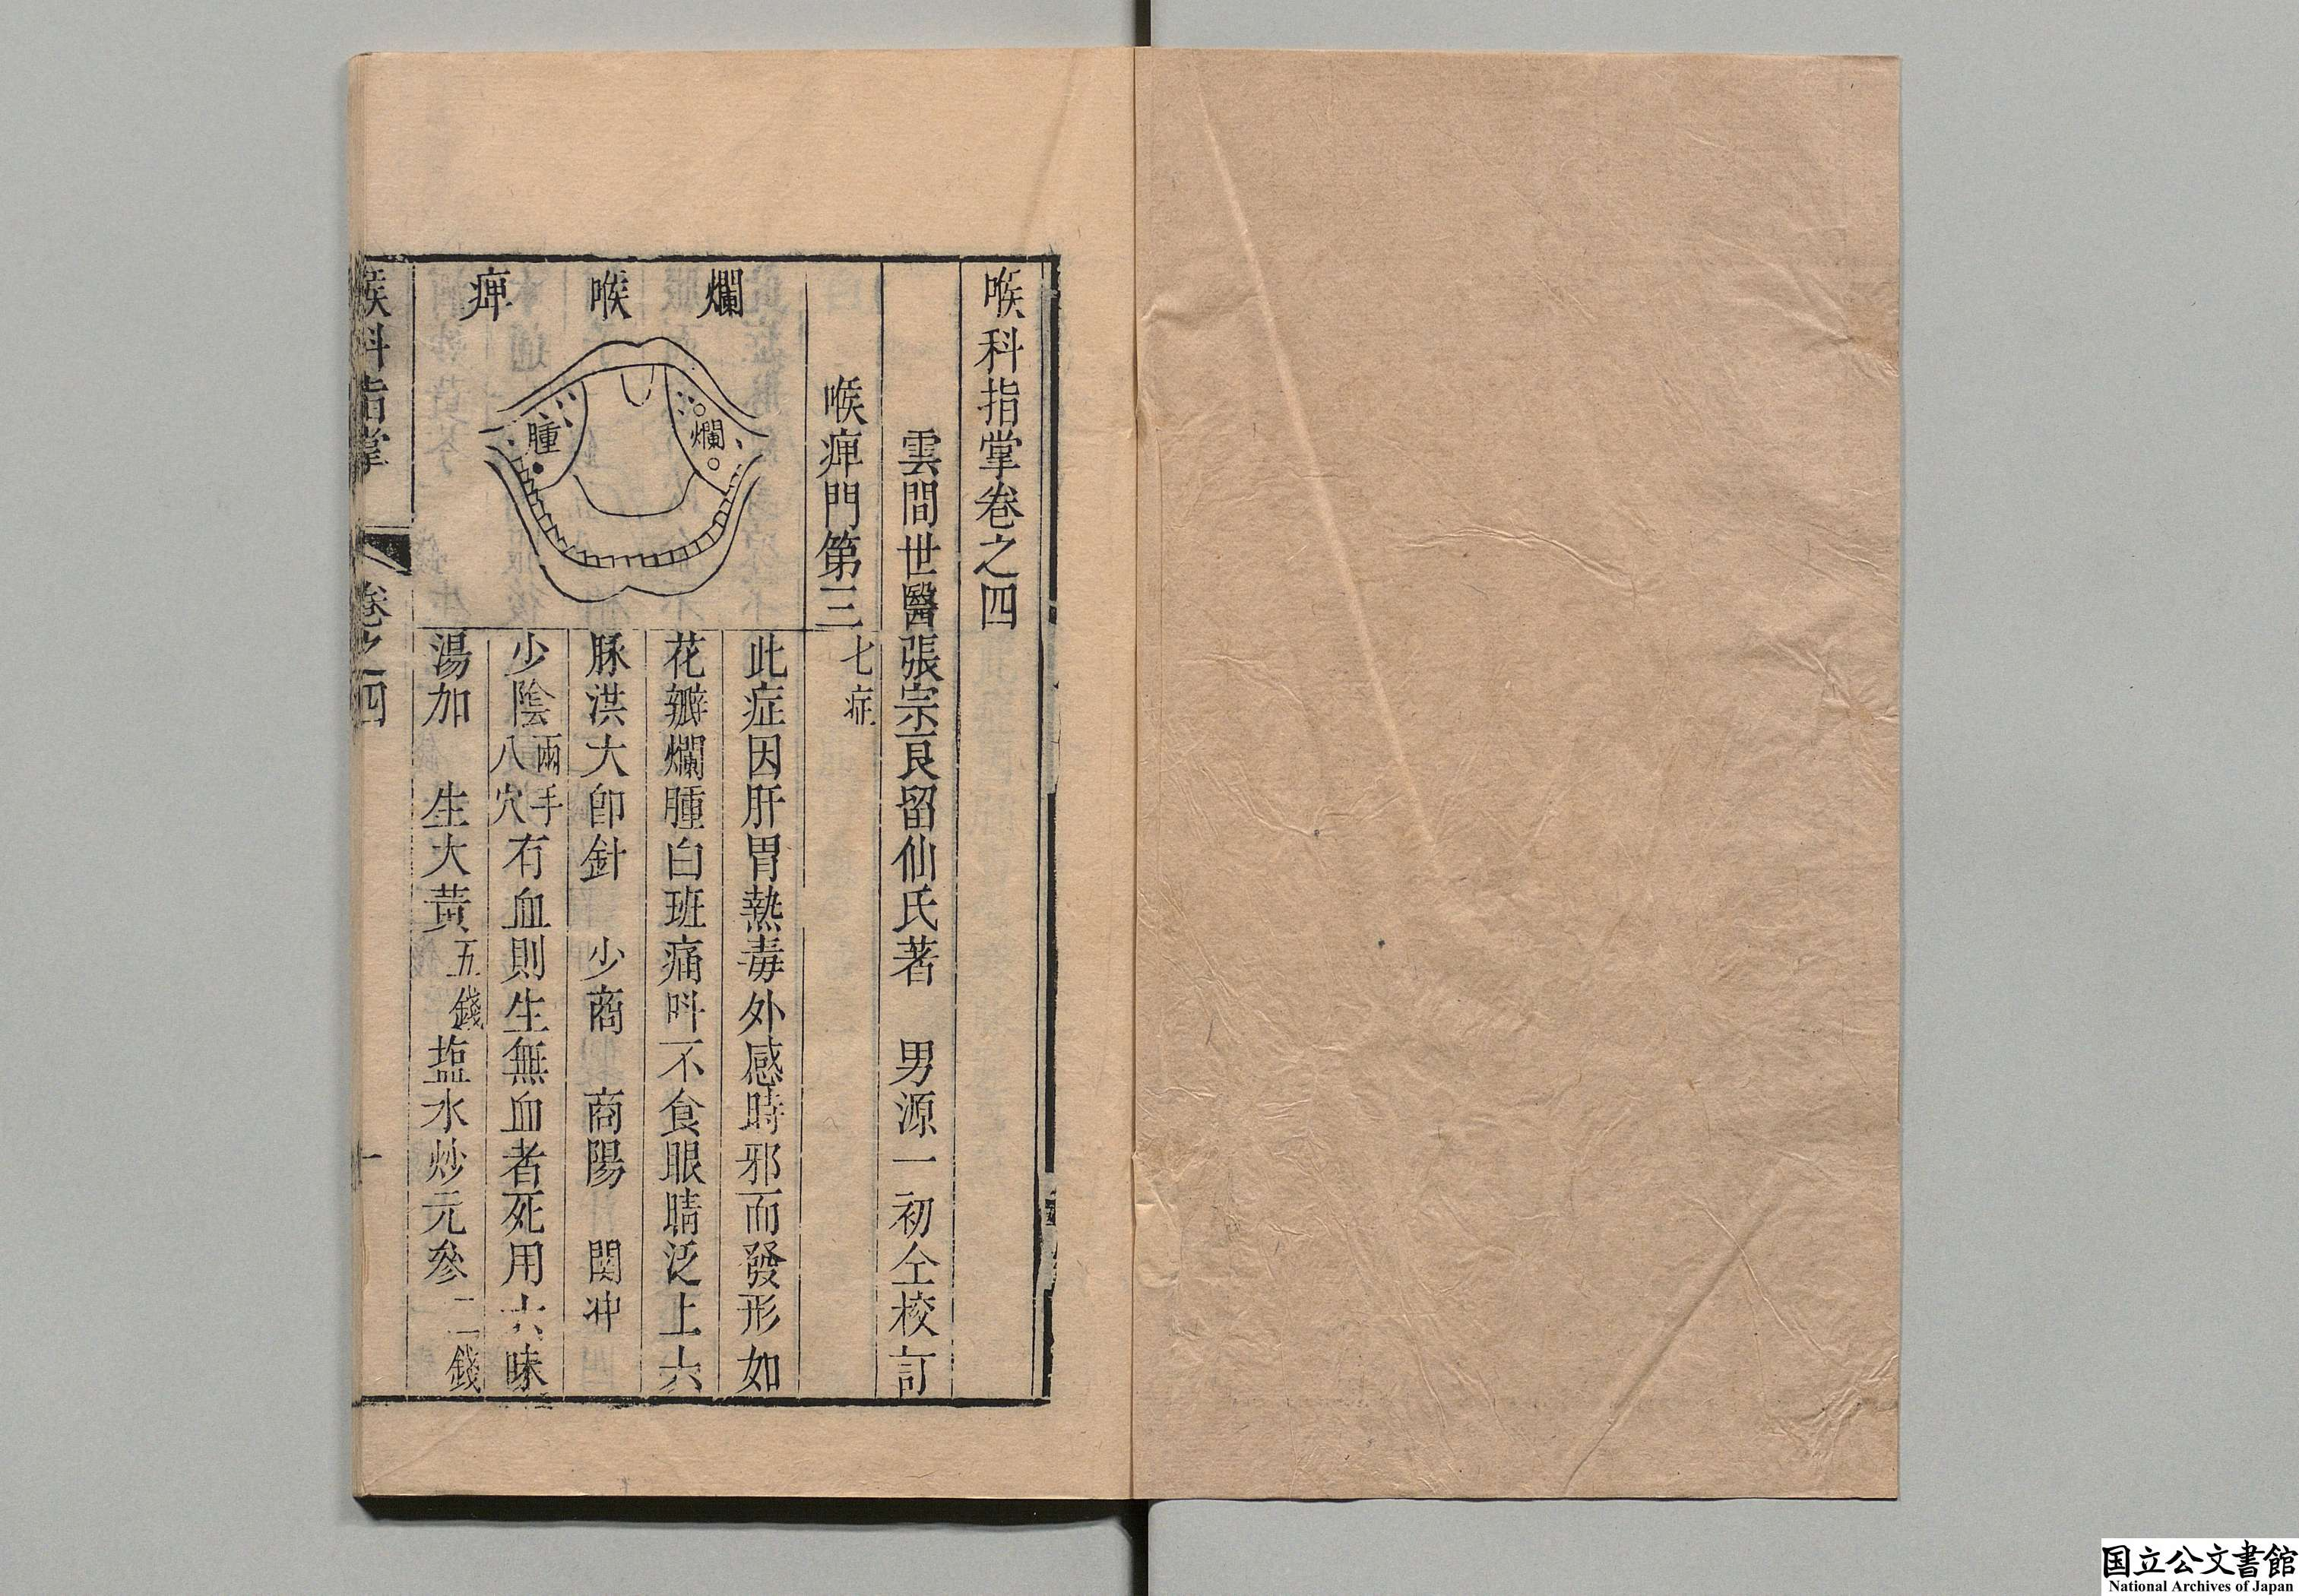 喉科指掌卷之四
雲間世醫張宗良留仙氏著　男源一初仝校訂
喉痺門第三　七症
爛喉痺
爛
腫
此症因肝胃熱毒外感時邪而發形如
花瓣爛腫白班痛呌不食眼睛泛上六
脉洪大即針　少商　商陽　関冲
少陰兩手八穴有血則生無血者死用六味
湯加　生大黃五錢塩水炒元參二錢
喉科指掌　卷之四　一
国立公文書館
National Archives of Japan